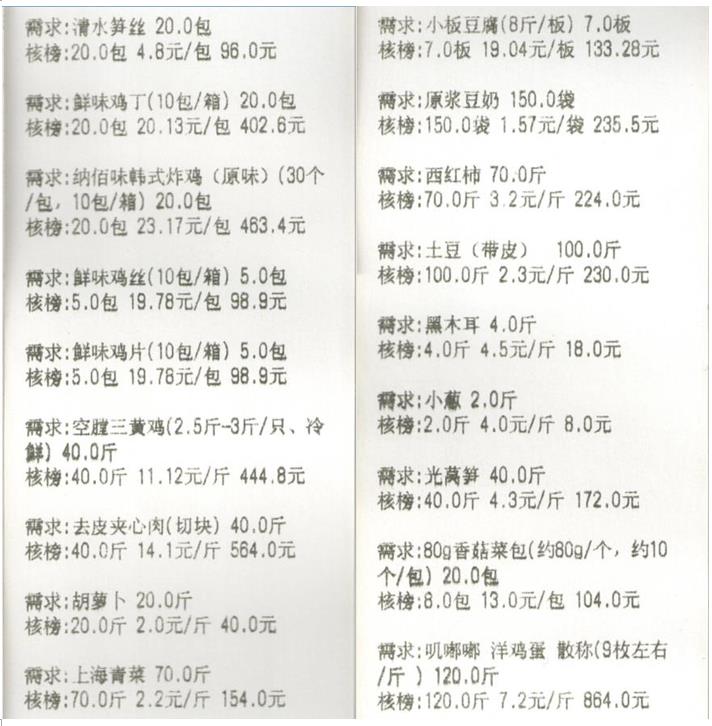 需求:清水笋丝 20.0包
核榜:20.0包 4.8元/包 96.0元
需求:鲜味鸡丁(10包/箱) 20.0包
核榜:20.0包 20.13元/包 402.6元
需求:纳佰味韩式炸鸡（原味）(30个
/包，10包/箱) 20.0包
核榜:20.0包 23.17元/包 463.4元
需求:鲜味鸡丝(10包/箱) 5.0包
核榜:5.0包 19.78元/包 98.9元
需求:鲜味鸡片(10包/箱) 5.0包
核榜:5.0包 19.78元/包 98.9元
需求:空膛三黄鸡(2.5斤-3斤/只、冷
鲜) 40.0斤
核榜:40.0斤 11.12元/斤 444.8元
需求:去皮夹心肉(切块) 40.0斤
核榜:40.0斤 14.1元/斤 564.0元
需求:胡萝卜 20.0斤
核榜:20.0斤 2.0元/斤 40.0元
需求:上海青菜 70.0斤
核榜:70.0斤 2.2元/斤 154.0元
需求:小板豆腐(8斤/板) 7.0板
核榜:7.0板 19.04元/板 133.28元
需求:原浆豆奶 150.0袋
核榜:150.0袋 1.57元/袋 235.5元
需求:西红柿 70.0斤
核榜:70.0斤 3.2元/斤 224.0元
需求:土豆（带皮） 100.0斤
核榜:100.0斤 2.3元/斤 230.0元
需求:黑木耳 4.0斤
核榜:4.0斤 4.5元/斤 18.0元
需求:小葱 2.0斤
核榜:2.0斤 4.0元/斤 8.0元
需求:光莴笋 40.0斤
核榜:40.0斤 4.3元/斤 172.0元
需求:80g香菇菜包(约80g/个，约10
个/包) 20.0包
核榜:8.0包 13.0元/包 104.0元
需求:叽嘟嘟 洋鸡蛋 散称(9枚左右
/斤 ) 120.0斤
核榜:120.0斤 7.2元/斤 864.0元